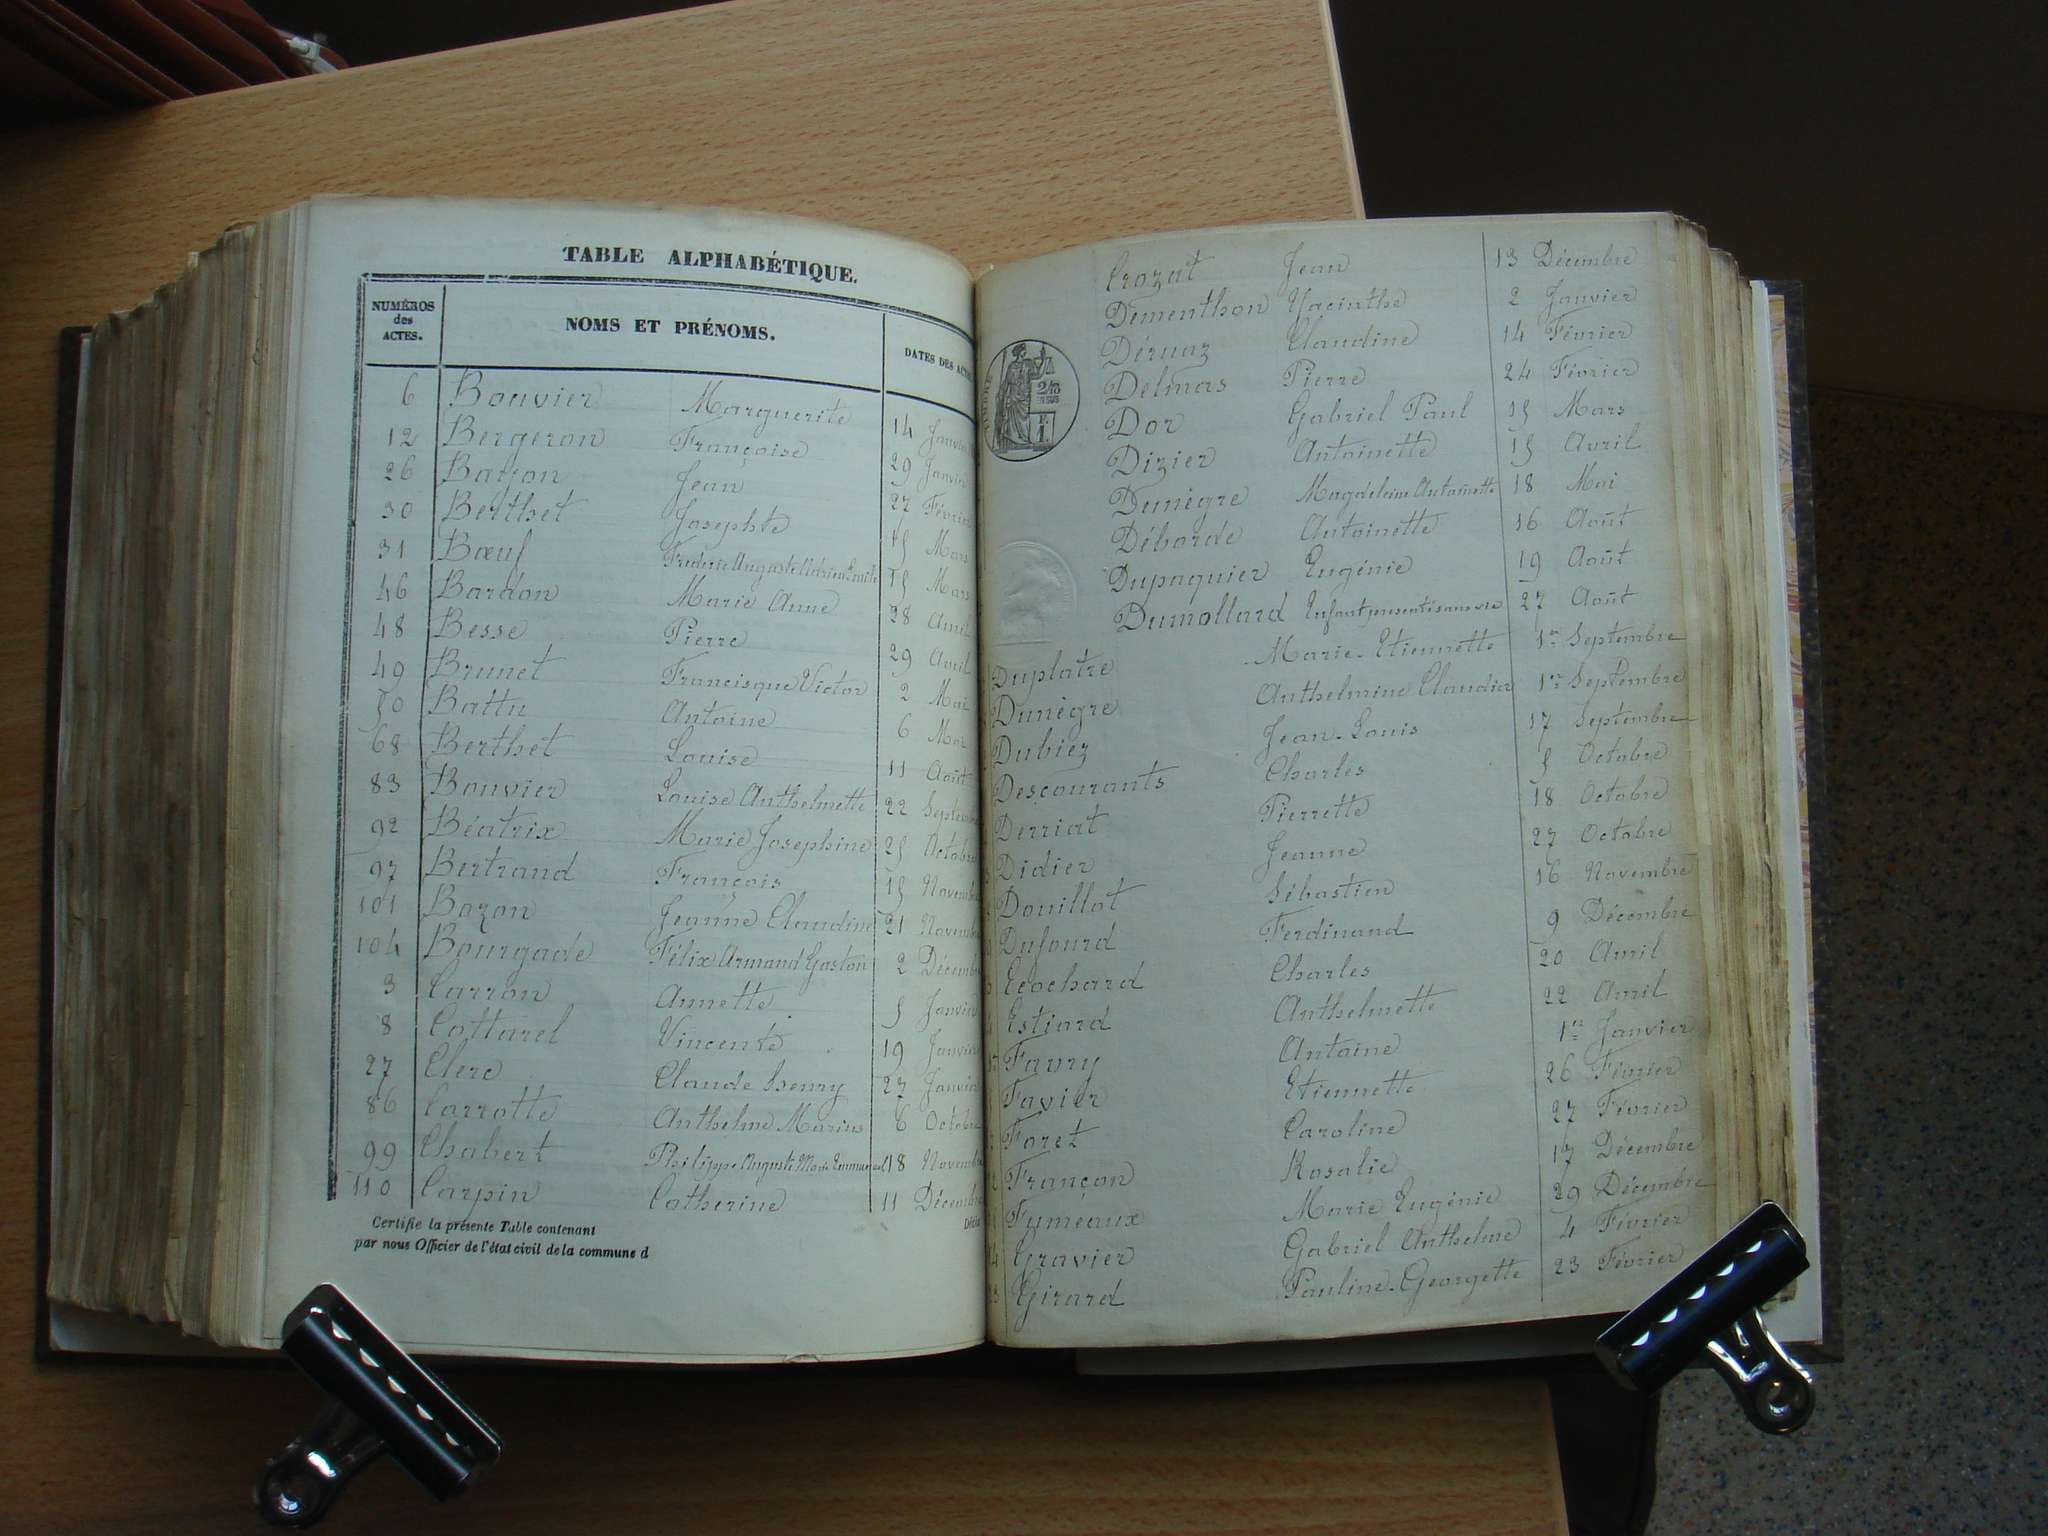 TABLE ALPHABÉTIQUE.
NUMÉROS des ACTES. NOMS ET PRÉNOMS. DATES DES ACTES
6 Bouvier Marguerite 14 Janvier
12 Bergeron Françoise 29 Janvier
26 Bazon Jean 27 Février
30 Berthet Josephte 15 Mars
31 Bœuf 15 Mars
46 Bardon Marie Anne 28 Avril
48 Besse Pierre 29 Avril
49 Brunet Francisque Victor 2 Mai
50 Battu Antoine 6 Mai
68 Berthet Louise 11 Août
83 Bouvier Louise Anthelmette 22 Septembre
92 Béatrix Marie Josephine 25 Octobre
97 Bertrand François 15 Novembre
101 Bozon Jeanne Claudine 21 Novembre
104 Bourgade Félix Armand Gaston 2 Décembre
3 Carron Annette 5 Janvier
8 Cottarel Vincente 19 Janvier
27 Clerc Claude henry 27 Janvier
86 Carrotte Anthelme Marius 6 Octobre
99 Chabert Philippe Auguste Marie Emmanuel 18 Novembre
110 Carpin Catherine 11 Décembre
Certifie la présente Table contenant
par nous Officier de l'état civil de la commune d
TIMBRE
2/10 EN SUS
F. 1.
Crozat Jean 13 Décembre
Dementhon Yacinthe 2 Janvier
Déruaz Claudine 14 Février
Delmas Pierre 24 Février
Dor Gabriel Paul 15 Mars
Dizier Antoinette 15 Avril
Dunègre Magdeleine Antoinette 18 Mai
Déborde Antoinette 16 Août
Dupaquier Eugénie 19 Août
Dumollard Enfant présenté sans vie 27 Août
Duplatre Marie-Etiennette 1er Septembre
Dunègre Anthelmine Claudia 1er Septembre
Dubiez Jean-Louis 17 Septembre
Descourants Charles 5 Octobre
Derriat Pierrette 18 Octobre
Didier Jeanne 27 Octobre
Douillot Sébastien 16 Novembre
Dufourd Ferdinand 9 Décembre
Ecochard Charles 20 Avril
Estiard Anthelmette 22 Avril
Favry Antoine 1er Janvier
Favier Etiennette 26 Février
Foret Caroline 27 Février
Françon Rosalie 17 Décembre
Fumeaux Marie Eugénie 29 Décembre
Gravier Gabriel Anthelme 4 Février
Girard Pauline-Georgette 23 Février